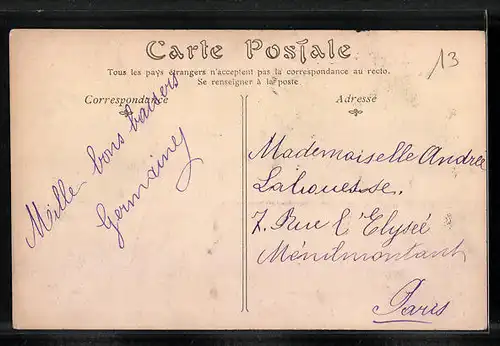 Carte Postale
Tous les pays étrangers n'acceptent pas la correspondance au recto.
Se renseigner à la poste
Correspondance
Adresse
13
Mille bons baisers
Germaine
Mademoiselle Andrée
Lahouesse.
7, Rue l'Elysée
Ménilmontant
Paris